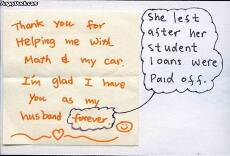 AngryDuck.com
Thank you for
Helping me with
Math & my car.
I'm glad I have
You as my
husband forever.
She left
after her
student
loans were
Paid off.